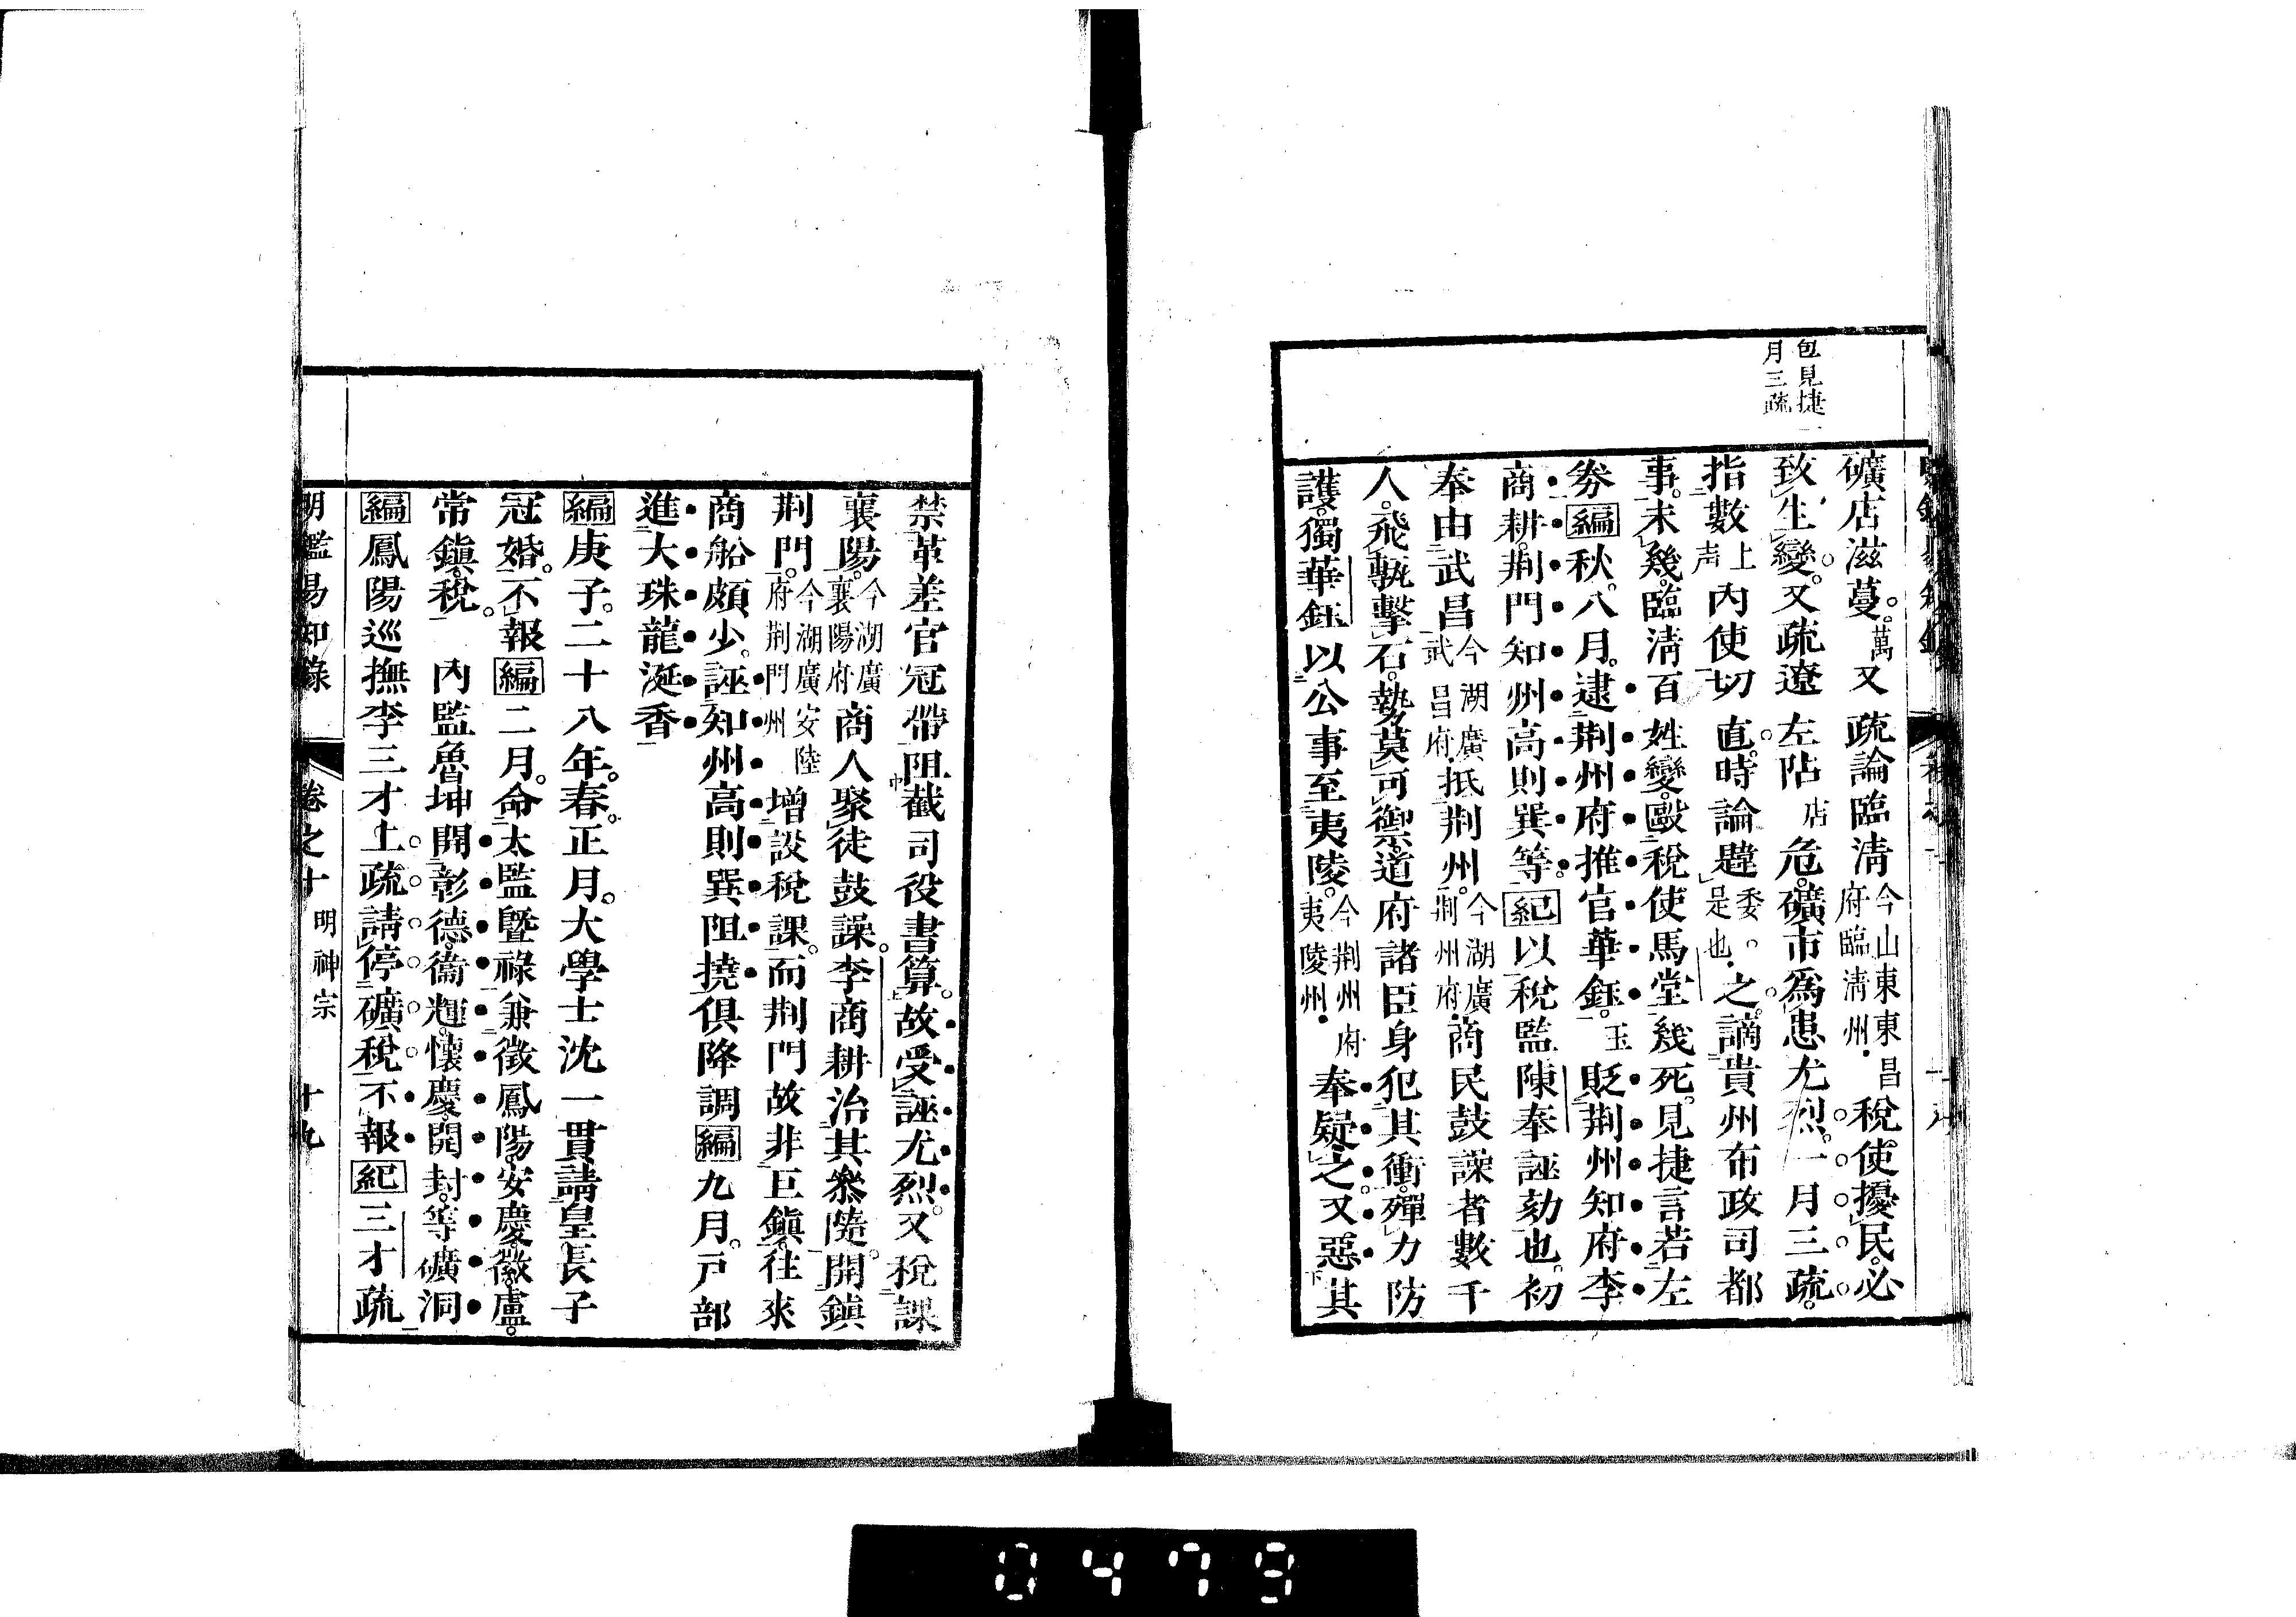 包見捷一
月三疏
礦店滋蔓。萬又疏論臨淸今山東東昌府臨淸州稅使擾民。必
致生變。又疏遼左阽店危。礦市爲患尤烈。一月三疏。
指數上声內使。切直。時論韙委。是也。之。謫貴州布政司都
事。未幾。臨淸百姓變。毆稅使馬堂幾死。見捷言若左
劵編秋。八月。逮荆州府推官華鈺。玉貶荆州知府李
商耕。荆門知州高則巽等。紀以稅監陳奉誣劾也。初
奉由武昌今湖廣武昌府抵荆州。今湖廣荆州府商民鼓譟者數千
人。飛執擊石。勢莫可禦。道府諸臣身犯其衝。殫力防
護。獨華鈺以公事至夷陵。今荆州府夷陵州奉疑之。又惡其
禁革差官冠帶。阻截司役書算。故受誣尤烈。又稅課
襄陽。今湖廣襄陽府商人聚徒鼓譟。李商耕治其叅隨。開鎭
荆門。今湖廣安陸府荆門州增設稅課。而荆門故非巨鎭。往來
商船頗少。誣知州高則巽阻撓。俱降調編九月。戸部
進大珠龍涎香
編庚子。二十八年。春。正月。大學士沈一貫請皇長子
冠婚。不報編二月。命太監曁祿兼徵鳳陽。安慶。徽。盧。
常。鎭。稅。內監魯坤開彰德。衞輝。懷慶。開封。等礦洞
編鳳陽巡撫李三才上疏請停礦稅。不報紀三才疏
明鑑易知錄 卷之十 明神宗 十九